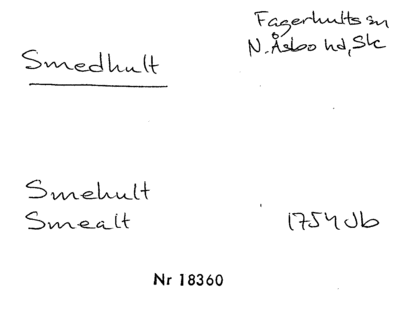 Fagerhults sn
Smedhult N. Åsbo hd, Sk
Smehult
Smealt 1754 Jb
Nr 18360